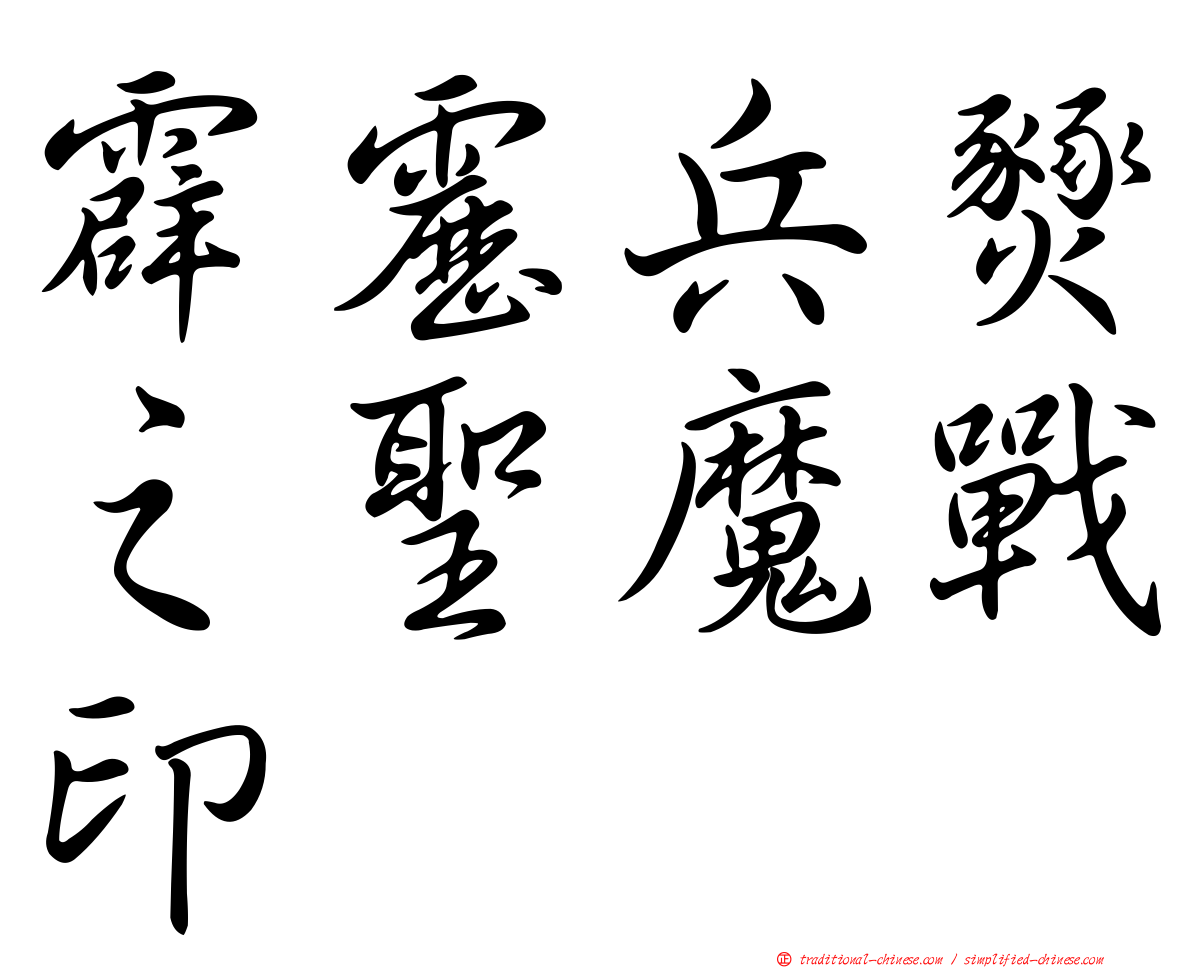 霹靂兵燹
之聖魔戰
印
正 traditional-chinese.com / simplified-chinese.com